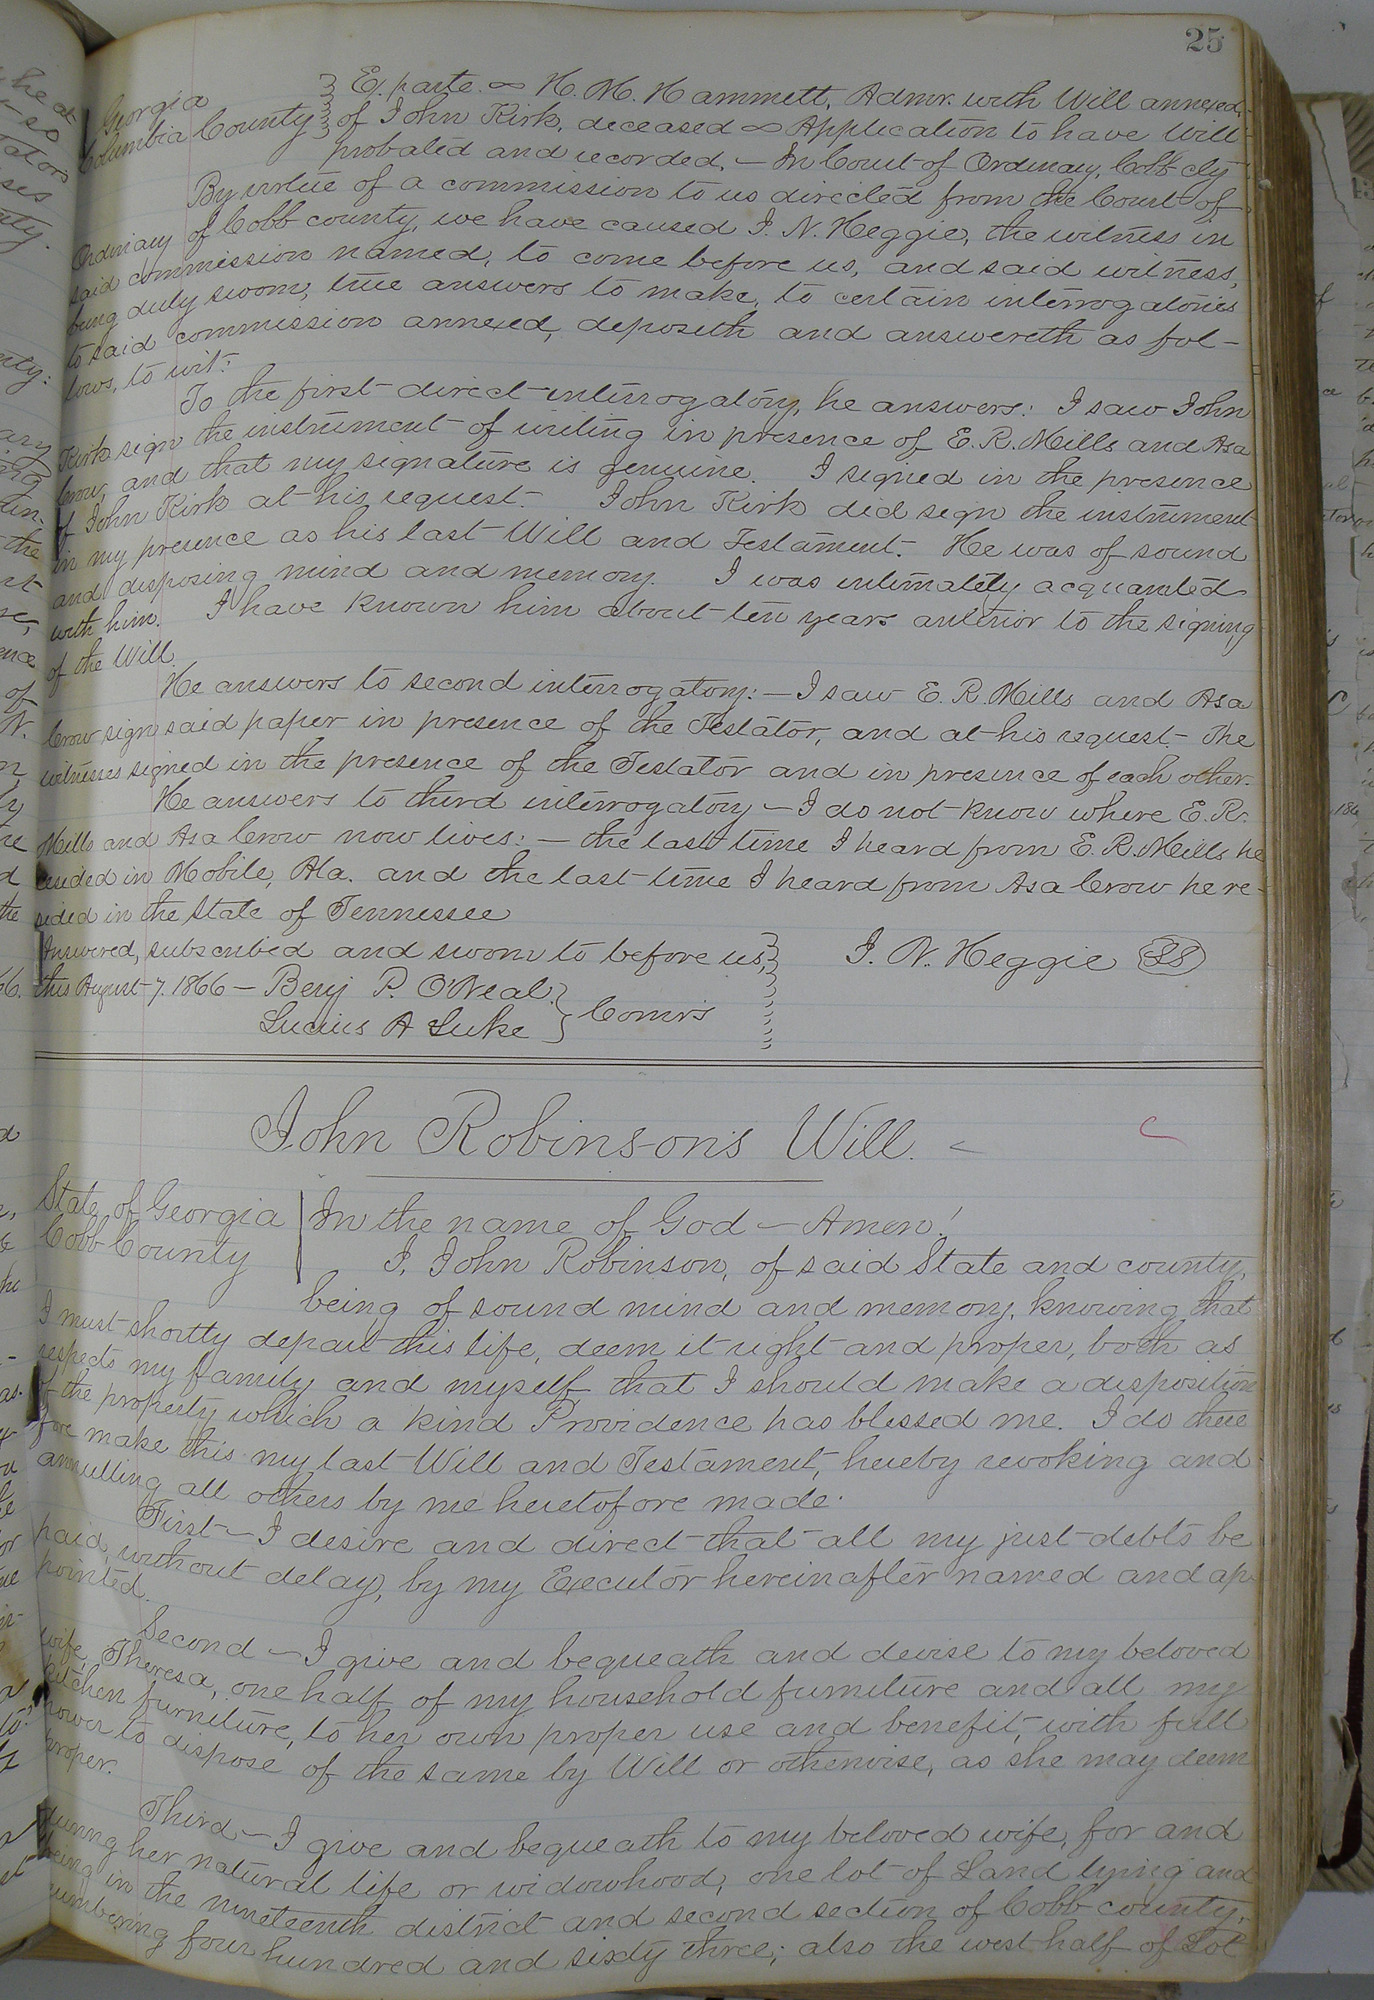 25
Georgia
Columbia County
Ex parte. ∞ H. M. Hammett, Admr. with Will annexed,
of John Kirk, deceased ∞ Application to have Will
probated and recorded, — In Court of Ordinary, Cobb cty
By virtue of a commission to us directed from the Court of
Ordinary of Cobb county, we have caused I. N. Heggie, the witness in
said commission named, to come before us, and said witness,
being duly sworn, true answers to make, to certain interrogatories
to said commission annexed, deposeth and answereth as fol-
lows, to wit:
To the first direct interrogatory, he answers: I saw John
Kirk sign the instrument of writing in presence of E. R. Mills and Asa
Crow, and that my signature is genuine. I signed in the presence
of John Kirk at his request. John Kirk did sign the instrument
in my presence as his last Will and Testament. He was of sound
and disposing mind and memory. I was intimately acquainted
with him. I have known him about ten years anterior to the signing
of the Will.
He answers to second interrogatory: — I saw E. R. Mills and Asa
Crow sign said paper in presence of the Testator, and at his request. The
witnesses signed in the presence of the Testator and in presence of each other.
He answers to third interrogatory — I do not know where E. R.
Mills and Asa Crow now lives: — the last time I heard from E. R. Mills he
resided in Mobile, Ala. and the last time I heard from Asa Crow he re-
sided in the State of Tennessee
Answered, subscribed and sworn to before us,
this August 7. 1866 — Benj P. O'Neal
Lucius A Luke
Comrs
I. N. Heggie LS
John Robinson's Will.
State of Georgia
Cobb County
In the name of God — Amen!
I, John Robinson, of said State and county,
being of sound mind and memory, knowing that
I must shortly depart this life, deem it right and proper, both as
respects my family and myself, that I should make a disposition
of the property which a kind Providence has blessed me. I do there
fore make this my last Will and Testament, hereby revoking and
annulling all others by me heretofore made.
First — I desire and direct that all my just debts be
paid, without delay, by my Executor hereinafter named and ap-
pointed.
Second — I give and bequeath and devise to my beloved
wife, Theresa, one half of my household furniture and all my
kitchen furniture, to her own proper use and benefit, with full
power to dispose of the same by Will or otherwise, as she may deem
proper.
Third — I give and bequeath to my beloved wife, for and
during her natural life or widowhood, one lot of Land lying and
being in the nineteenth district and second section of Cobb county,
numbering four hundred and sixty three; also the west half of Lot